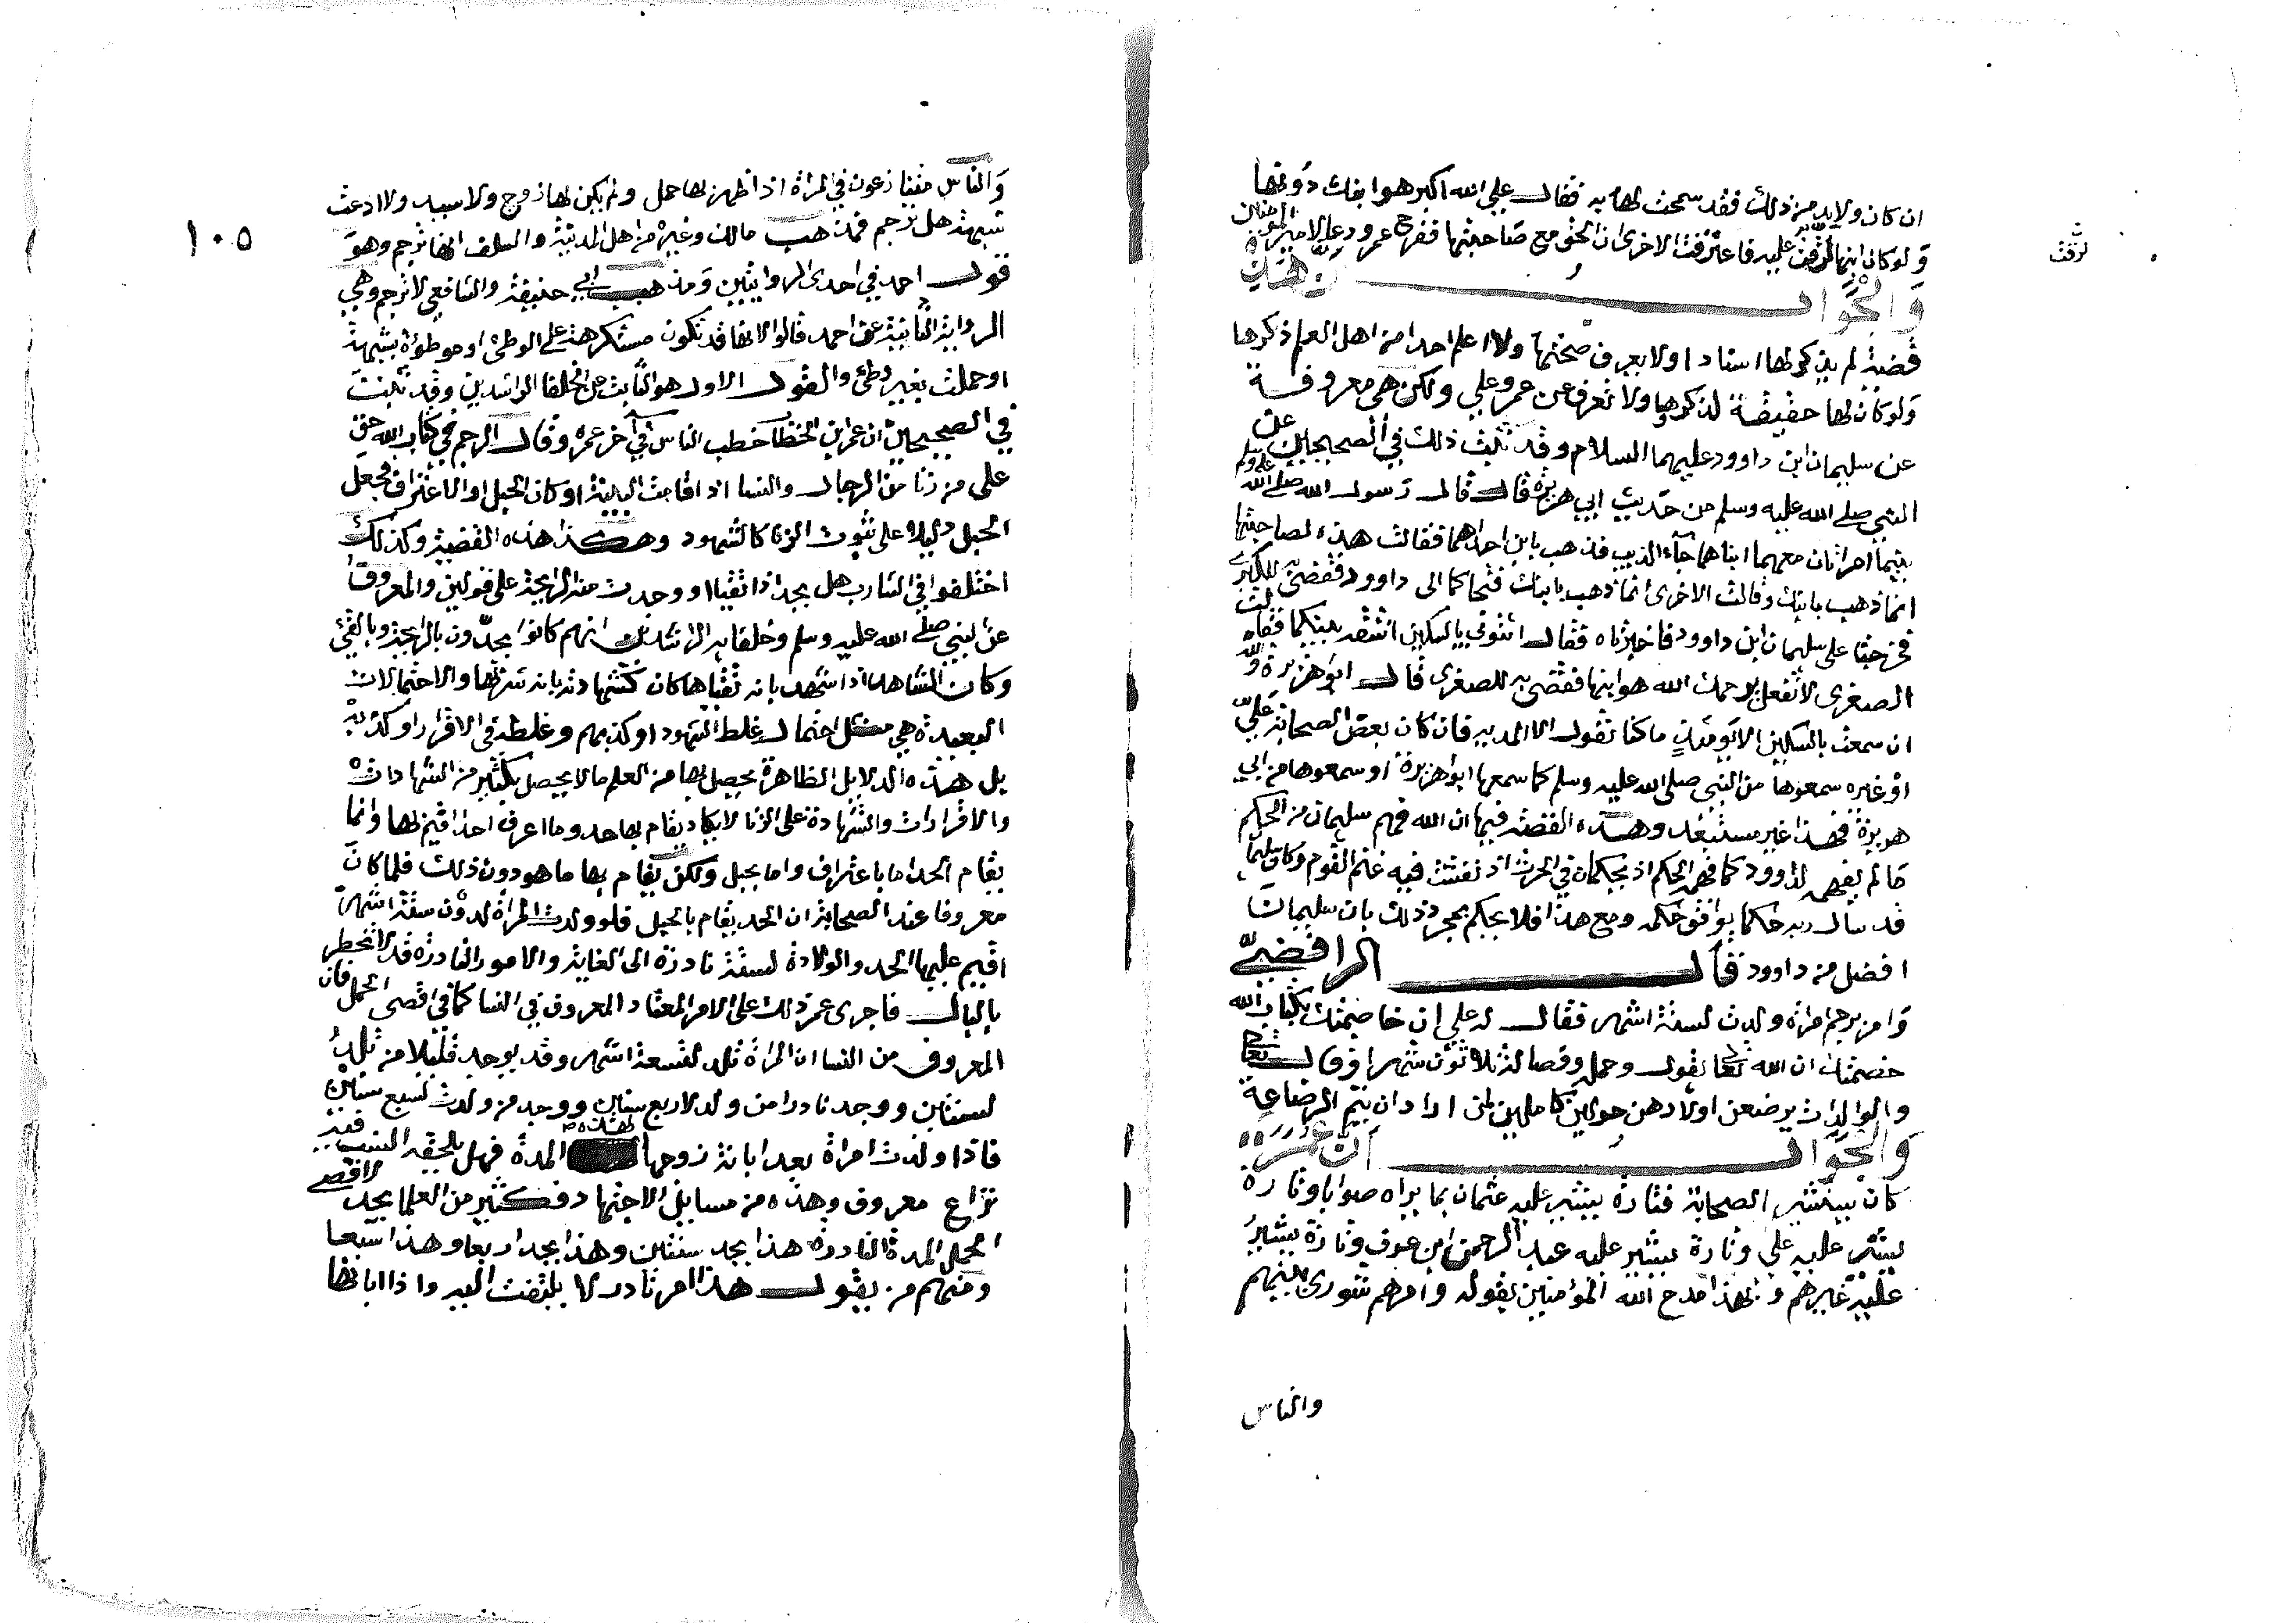 ان كان ولابد من ذلك فقد سمحت لها به فقال علي الله اكبر هو ابنك دونها
ولو كان ابنها لرقت عليه فاعترفت الاخرى ان الحق مع صاحبتها ففرح عمر ودعا لامير المومنين
لرقت
والجواب ان هذه
قضية لم يذكر لها اسنادا ولا يعرف صحتها ولا اعلم احدا من اهل العلم ذكرها
ولو كان لها حقيقة لذكروها ولا تعرف عن عمر وعلي ولكن هي معروفة
عن سليمان ابن داوود عليهما السلام وقد ثبت ذلك في الصحيحين عن
النبي صلى الله عليه وسلم من حديث ابي هريرة قال قال رسول الله صلى الله عليه وسلم
بينما امراتان معهما ابناهما جاء الذيب فذهب بابن احداهما فقالت هذه لصاحبتها
انما ذهب بابنك وقالت الاخرى انما ذهب بابنك فتحاكما الى داوود فقضى به للكبرى
فخرجتا على سليمان ابن داوود فاخبرتاه فقال ائتوني بالسكين اشقه بينكما فقالت
الصغرى لا تفعل يرحمك الله هو ابنها فقضى به للصغرى قال ابو هريرة والله
ان سمعت بالسكين الا يومئذ ما كنا نقول الا المدية فان كان بعض الصحابة علي
او غيره سمعوها من النبي صلى الله عليه وسلم كما سمعها ابو هريرة او سمعوها من ابي
هريرة فهذا غير مستبعد وهذه القصة فيها ان الله فهم سليمان من الحكم
ما لم يفهمه لداوود كما فهمه الحكم اذ يحكمان في الحرث اذ نفشت فيه غنم القوم وكان سليمان
قد سال ربه حكما يوافق حكمه ومع هذا فلا يحكم بمجرد ذلك بان سليمان
افضل من داوود قال الرافضي
وامر برجم امراة ولدت لستة اشهر فقال له علي ان خاصمتك بكتاب الله
خصمتك ان الله تعالى يقول وحمله وفصاله ثلاثون شهرا وقال تعالى
والوالدات يرضعن اولادهن حولين كاملين لمن اراد ان يتم الرضاعة
والجواب ان عمر
كان يستشير الصحابة فتارة يشير عليه عثمان بما يراه صوابا وتارة
يشير عليه علي وتارة يشير عليه عبد الرحمن ابن عوف وتارة يشير
عليه غيرهم وبهذا مدح الله المؤمنين بقوله وامرهم شورى بينهم
والناس
١٠٥
والناس متنازعون في المراة اذا ظهر بها حمل ولم يكن لها زوج ولا سيد ولا ادعت
شبهة هل ترجم فمذهب مالك وغيره من اهل المدينة والسلف انها ترجم وهو
قول احمد في احدى الروايتين ومذهب ابي حنيفة والشافعي لا ترجم وهي
الرواية الثانية عن احمد قالوا لانها قد تكون مستكرهة على الوطئ او موطؤة بشبهة
او حملت بغير وطئ والقول الاول هو الثابت عن الخلفا الراشدين وقد ثبت
في الصحيحين ان عمر ابن الخطاب خطب الناس في آخر عمره وقال الرجم في كتاب الله حق
على من زنا من الرجال والنسا اذا قامت البينة او كان الحبل او الاعتراف فجعل
الحبل دليلا على ثبوت الزنا كالشهود وهكذا هذه القضية وكذلك
اختلفوا في الشارب هل يحد اذا تقيا او وجدت منه الرايحة على قولين والمعروف
عن النبي صلى الله عليه وسلم وخلفايه الراشدين انهم كانوا يحدون بالرايحة وبالقئ
وكان الشاهد اذا شهد بانه تقياها كان كشهادته بانه شربها والاحتمالات
البعيدة هي مثل احتمال غلط الشهود او كذبهم وغلطه في الاقرار او كذبه
بل هذه الدلايل الظاهرة يحصل بها من العلم ما لا يحصل بكثير من الشهادات
والاقرارات والشهادة على الزنا لا يكاد يقام بها حد وما اعرف احدا اقيم بها وانما
يقام الحد اما باعتراف واما بحبل ولكن يقام بها ما هو دون ذلك فلما كان
معروفا عند الصحابة ان الحد يقام بالحبل فلو ولدت المراة لدون ستة اشهر
اقيم عليها الحد والولادة لستة نادرة الى الغاية والامور النادرة قد لا تخطر
بالبال فاجرى عمر ذلك على الامر المعتاد المعروف في النسا كما في اقصى الحمل فان
المعروف من النسا ان المراة تلد لتسعة اشهر وقد يوجد قليلا من تلد
لسنتين ووجد نادرا من ولد لاربع سنين ووجد من ولدت لسبع سنين
فاذا ولدت امراة بعد ابانة زوجها لهذه المدة فهل يلحقه النسب فيه
نزاع معروف وهذه من مسايل الاجتهاد فكثير من العلما يحد لاقصى
الحمل المدة النادرة هذا يحد سنتين وهذا يحد اربعا وهذا سبعا
ومنهم من يقول هذا امر نادر لا يلتفت اليه واذا ابانها